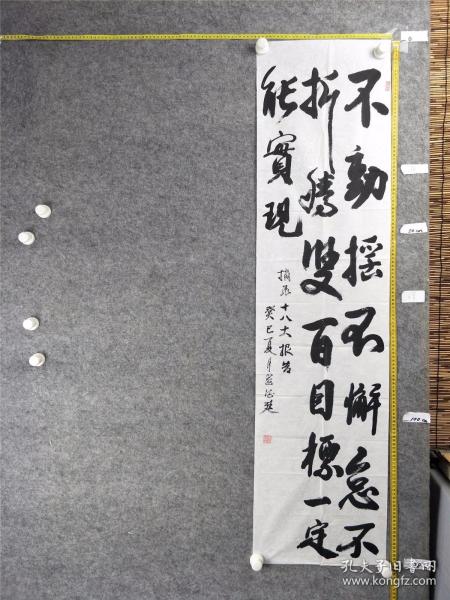 不動摇不懈怠不
折腾雙百目標一定
能實現
摘录十八大报告
癸巳夏月
孔夫子旧书网
www.kongfz.com